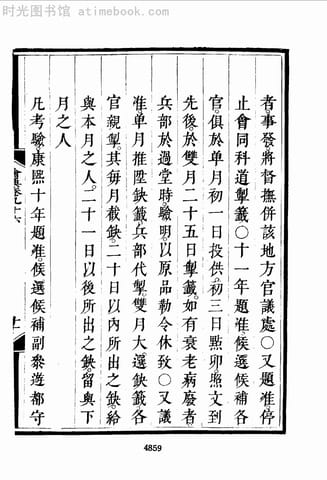 时光图书馆 - atimebook.com
者事發將督撫併該地方官議處○又題准停
止會同科道掣籤○十一年題准候選候補各
官俱於单月初一日投供初三日點卯照文到
先後於雙月二十五日掣籤如有衰老病廢者
兵部於過堂時驗明以原品勒令休致○又議
准单月推陞缺籤兵部代掣雙月大選缺籤各
官親掣其每月截缺二十日以内所出之缺給
與本月之人二十一日以後所出之缺留與下
月之人
凡考驗康熙十年題准候選候補副叅遊都守
十
4859